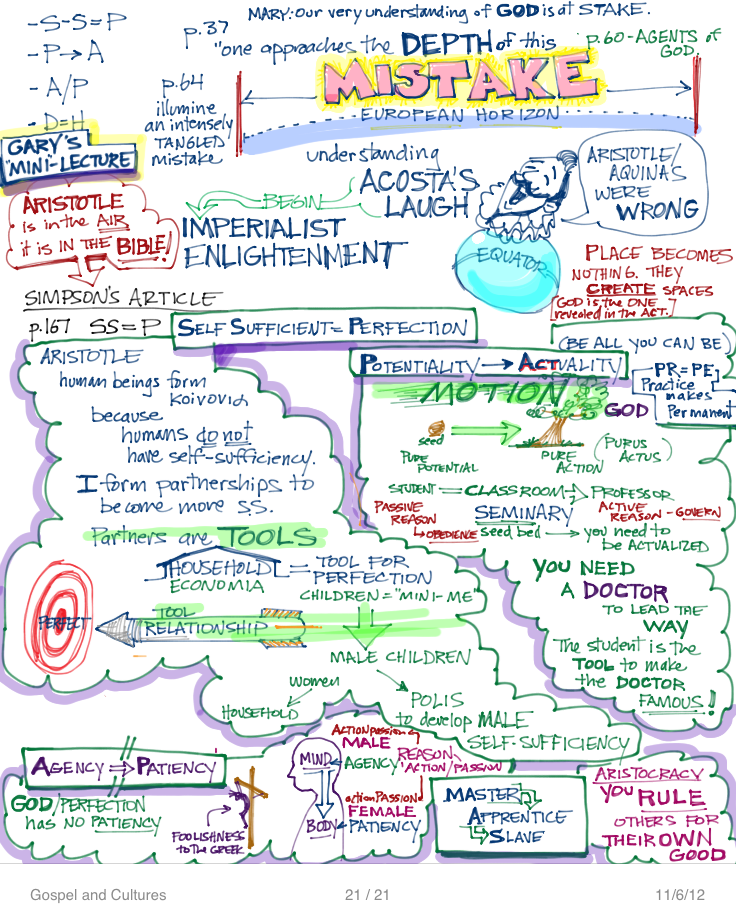 -S-S=P
-P→A
-A/P
-D=H
GARY'S
"MINI-LECTURE
p.37
MARY: Our very understanding of GOD is at STAKE.
"one approaches the DEPTH of this
MISTAKE
p.60-AGENTS of
GOD.
p.64
illumine
an intensely
TANGLED
mistake
EUROPEAN HORIZON
understanding
ACOSTA'S
LAUGH
BEGIN
IMPERIALIST
ENLIGHTENMENT
EQUATOR
ARISTOTLE/
AQUINAS
WERE
WRONG
ARISTOTLE
is in the AIR
it is IN THE BIBLE!
PLACE BECOMES
NOTHING. THEY
CREATE SPACES
[GOD is the ONE
revealed in the ACT.]
SIMPSON'S ARTICLE
p.167 SS=P
SELF SUFFICIENT=PERFECTION
ARISTOTLE
human beings form
KOIVOVIA
because
humans do not
have self-sufficiency.
I form partnerships to
become more S.S.
Partners are TOOLS
HOUSEHOLD = TOOL FOR
PERFECTION
ECONOMIA
CHILDREN = "MINI-ME"
PERFECT
TOOL
RELATIONSHIP
MALE CHILDREN
women
HOUSEHOLD
POLIS
to develop MALE
SELF-SUFFICIENCY
(BE ALL YOU CAN BE)
POTENTIALITY→ACTUALITY
PR=PE
Practice
makes
Permanent
MOTION
GOD
seed
PURE
POTENTIAL
PURE
ACTION
(PURUS
ACTUS)
STUDENT = CLASSROOM → PROFESSOR
PASSIVE
REASON
↳OBEDIENCE
SEMINARY
seed bed → you need to
be ACTUALIZED
ACTIVE
REASON - GOVERN
YOU NEED
A DOCTOR
TO LEAD THE
WAY
The student is the
TOOL to make
the DOCTOR
FAMOUS!
AGENCY ⇒ PATIENCY
GOD/PERFECTION
has NO PATIENCY
FOOLISHNESS
to the GREEK
MIND
BODY
Action/passion of
MALE
AGENCY
REASON
ACTION/PASSION
action/PASSION of
FEMALE
PATIENCY
MASTER
APPRENTICE
SLAVE
ARISTOCRACY
YOU RULE
OTHERS FOR
THEIR OWN
GOOD
Gospel and Cultures
21 / 21
11/6/12